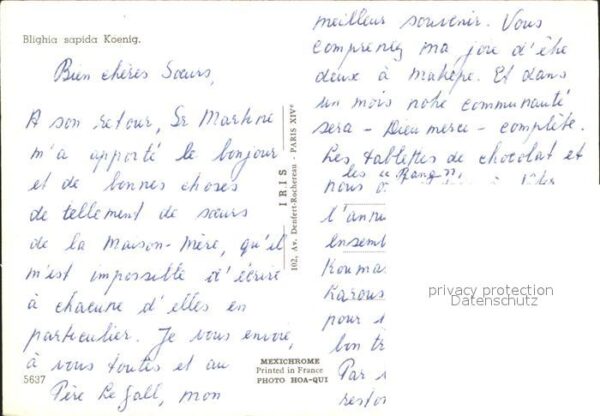 Blighia sapida Koenig.
Bien chères Sœurs,
A son retour, Sr Martine
m'a apporté le bonjour
et de bonnes choses
de tellement de sœurs
de la Maison-Mère, qu'il
m'est impossible d'écrire
à chacune d'elles en
particulier. Je vous envoie,
à vous toutes et au
Père Le Gall, mon
5637
IRIS
102, Av. Denfert-Rochereau - PARIS XIVe
MEXICHROME
Printed in France
PHOTO HOA-QUI
meilleur souvenir. Vous
comprenez ma joie d'être
deux à Makepe. Et dans
un mois notre communauté
sera - Dieu merci - complète.
Les tablettes de chocolat et
les
nous
l'anni
ensembl
Kouma
Karous
pour
bon tr
Par
restor
privacy protection
Datenschutz